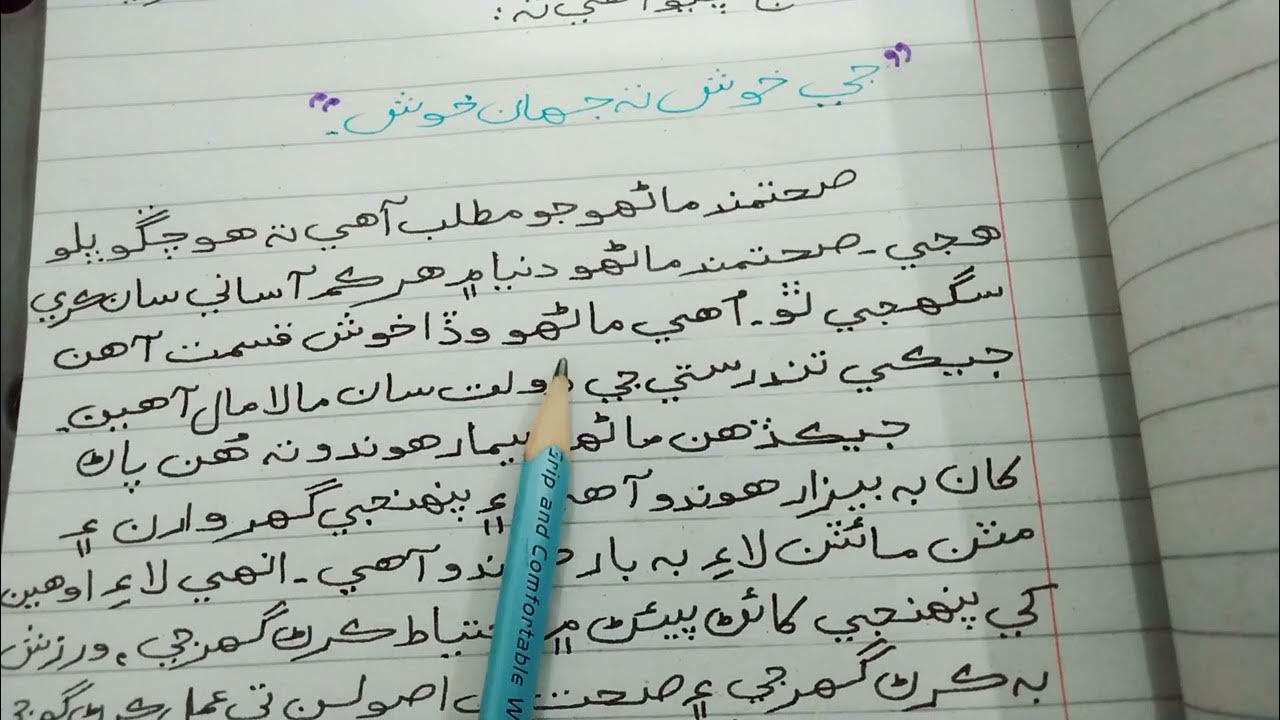 ”جي خوش ته جهان خوش۔“
صحتمند ماڻهو جو مطلب آهي ته هو چڱو ڀلو
هجي۔ صحتمند ماڻهو دنيا ۾ هر ڪم آساني سان ڪري
سگهجي ٿو۔ اُهي ماڻهو وڏا خوش قسمت آهن
جيڪي تندرستي جي دولت سان مالا مال آهين۔
جيڪڏهن ماڻهو بيمار هوندو ته هُن پاڻ
کان به بيزار هوندو آهي ۽ پنهنجي گهر وارن ۽
مٽن مائٽن لاءِ به بار هوندو آهي۔ انهي لاءِ اوهين
کي پنهنجي کائڻ پيئڻ ۾ احتياط ڪرڻ گهرجي، ورزش
به ڪرڻ گهرجي ۽ صحت اصولن تي عمل ڪرڻ
Grip and Comfortable W